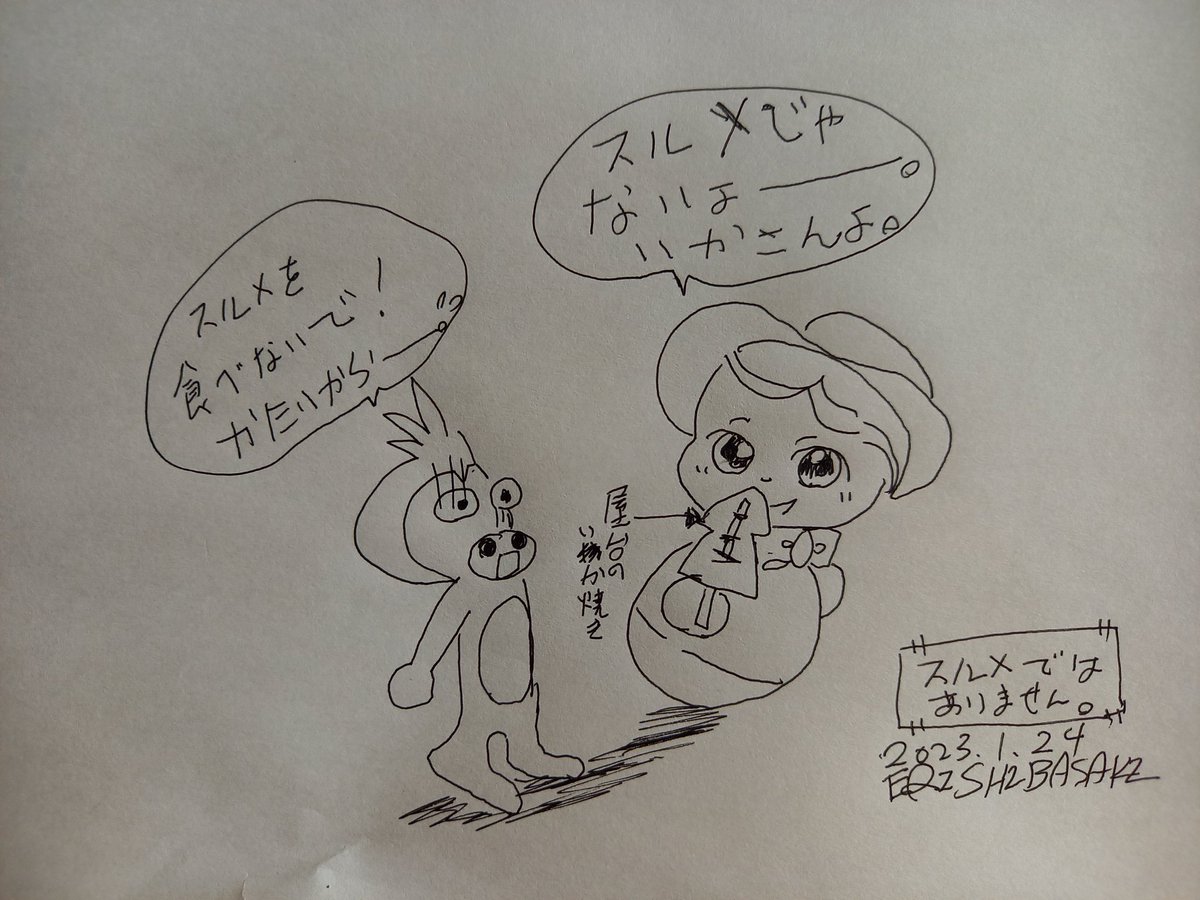 スルメを
食べないで！
かたいから〜。
スルメじゃ
ないよ〜。
いかさんよ。
屋台の
いか焼き
スルメでは
ありません。
2023.1.24
EQISHIBASAKI